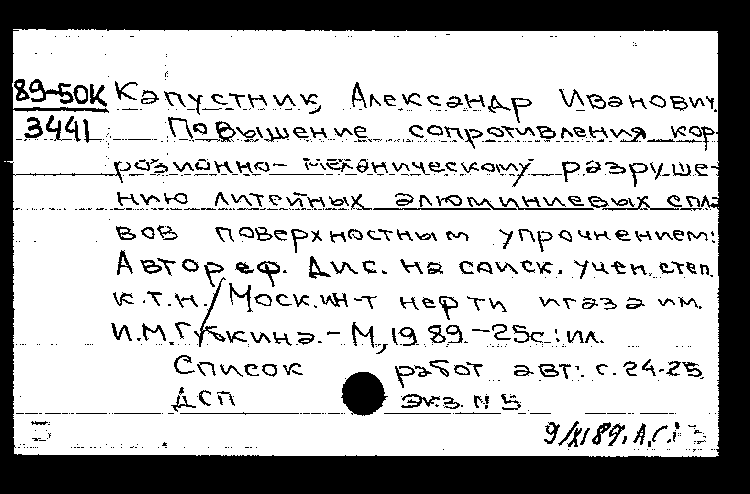 89-50К Капустник, Александр Иванович
3441 Повышение сопротивления кор-
розионно-механическому разруше-
нию литейных алюминиевых спла
вов поверхностным упрочнением:
Автореф. Дис. на соиск. учен. степ.
к.т.н. / Моск. ин-т нефти и газа им.
И.М.Губкина. - М, 1989. - 25с: ил.
Список работ авт: с. 24-25
ДСП экз. N 5
9/XI 89. А.С.